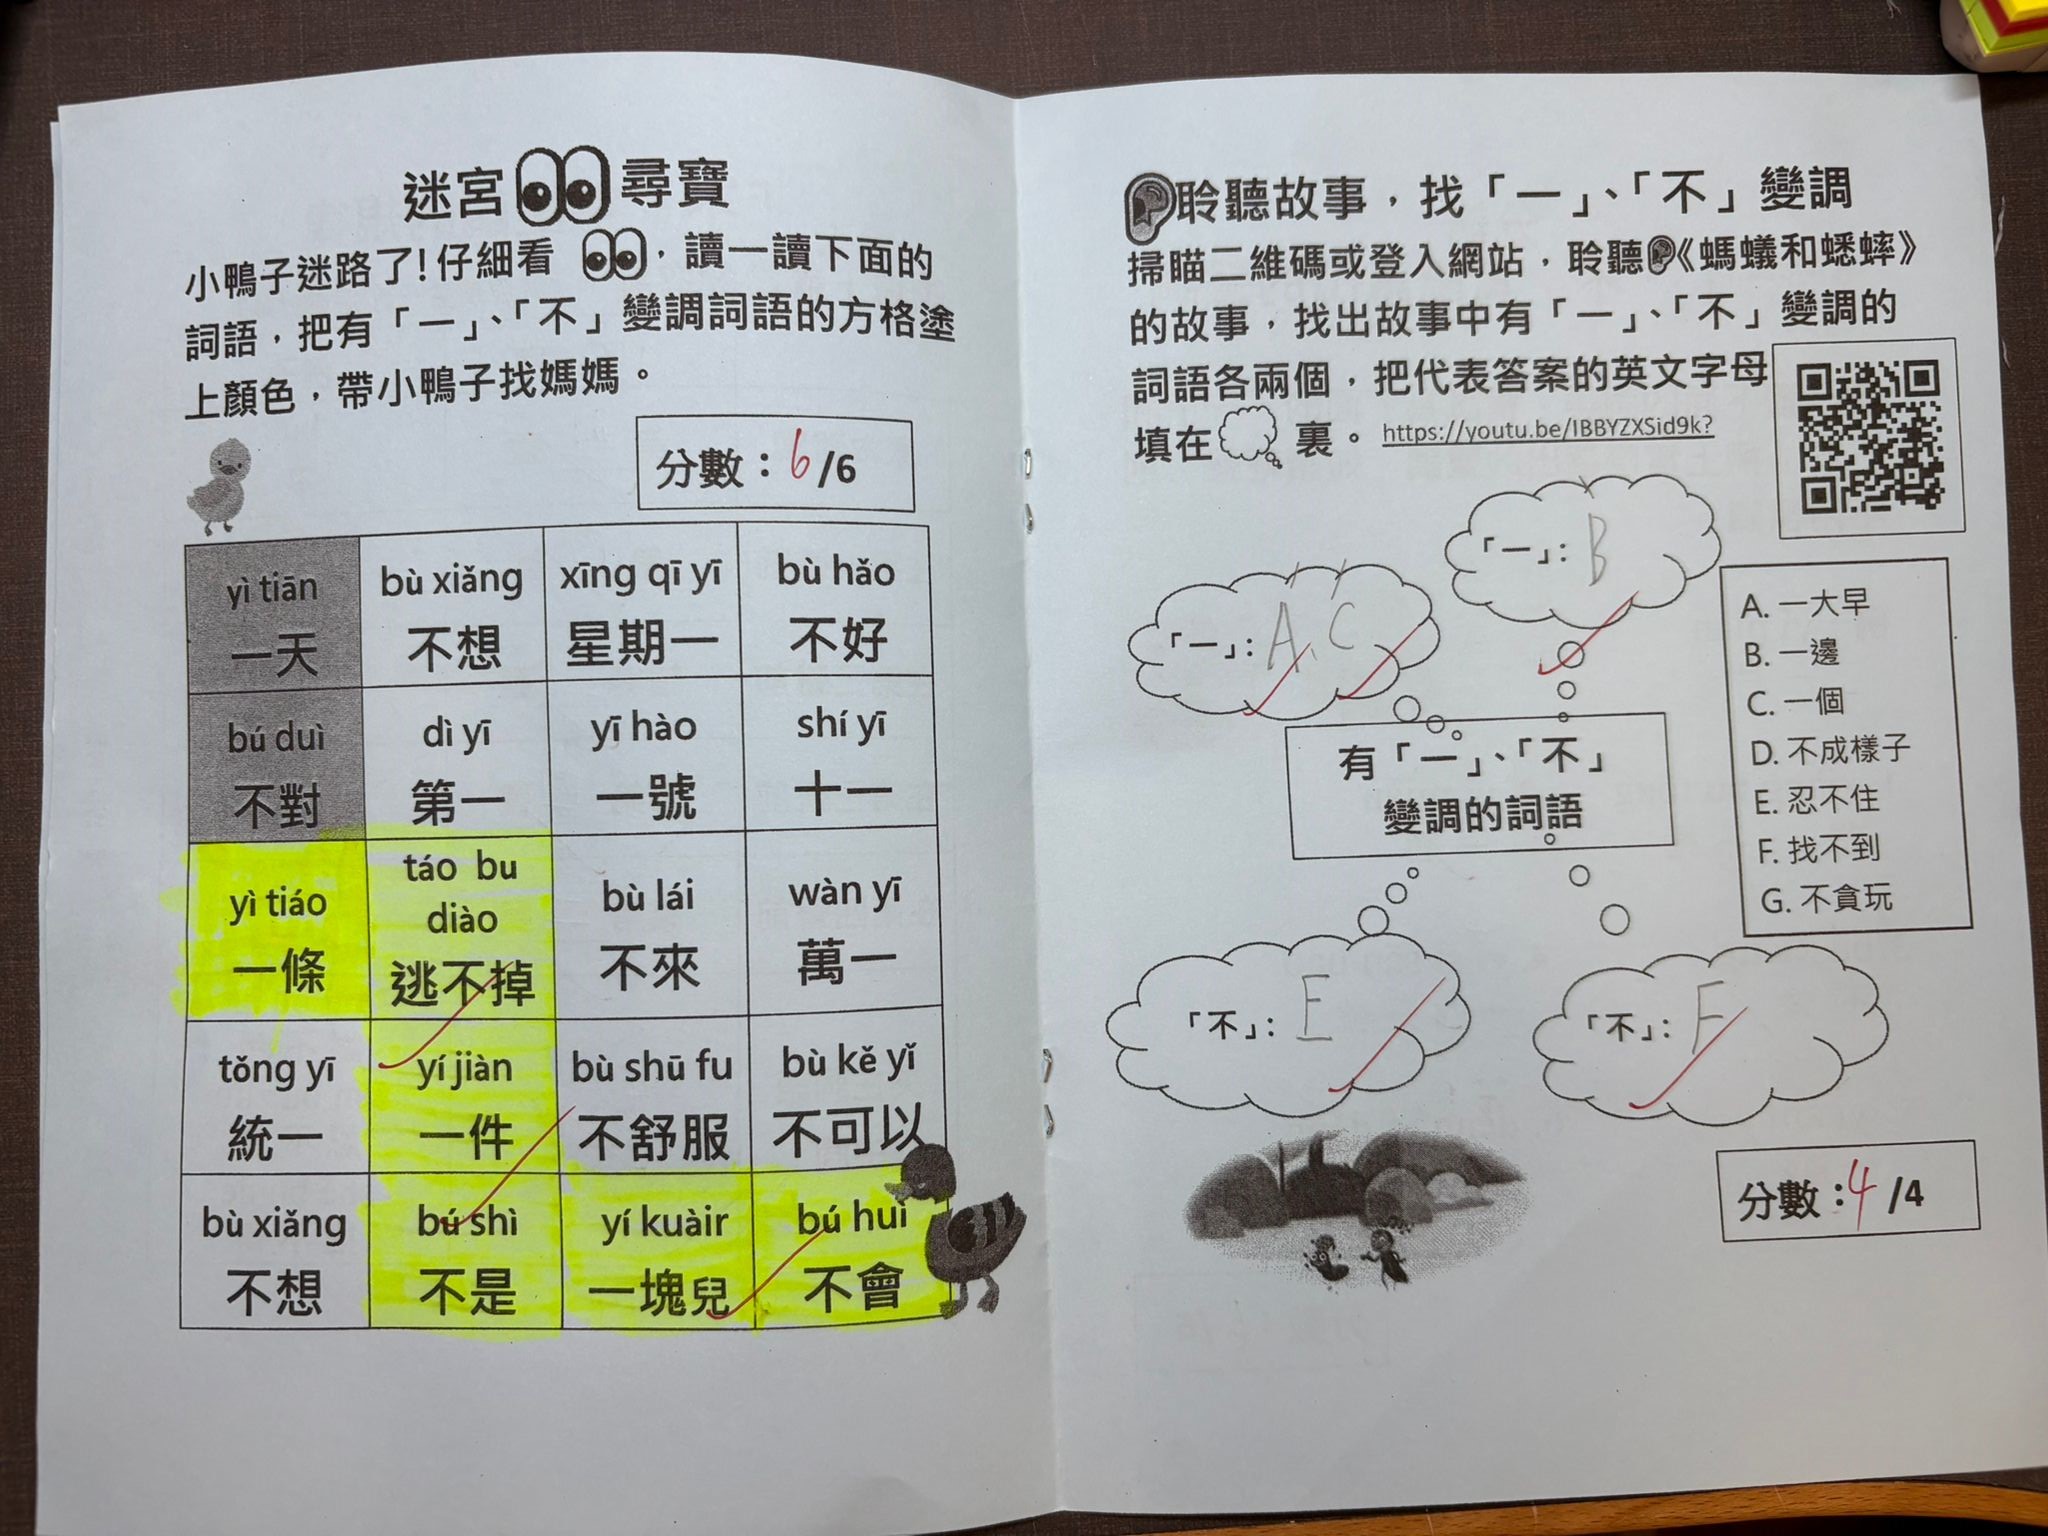 迷宮尋寶
小鴨子迷路了!仔細看 ，讀一讀下面的
詞語，把有「一」、「不」變調詞語的方格塗
上顏色，帶小鴨子找媽媽。
分數：6/6
yì tiān bù xiǎng xīng qī yī bù hǎo
一天 不想 星期一 不好
bú duì dì yī yī hào shí yī
不對 第一 一號 十一
yì tiáo táo bu diào bù lái wàn yī
一條 逃不掉 不來 萬一
tǒng yī yí jiàn bù shū fu bù kě yǐ
統一 一件 不舒服 不可以
bù xiǎng bú shì yí kuàir bú huì
不想 不是 一塊兒 不會
聆聽故事，找「一」、「不」變調
掃瞄二維碼或登入網站，聆聽《螞蟻和蟋蟀》
的故事，找出故事中有「一」、「不」變調的
詞語各兩個，把代表答案的英文字母
填在 裏。 https://youtu.be/IBBYZXSid9k?
「一」：A、C
「一」：B
A. 一大早
B. 一邊
C. 一個
D. 不成樣子
E. 忍不住
F. 找不到
G. 不貪玩
有「一」、「不」
變調的詞語
「不」：E
「不」：F
分數：4/4